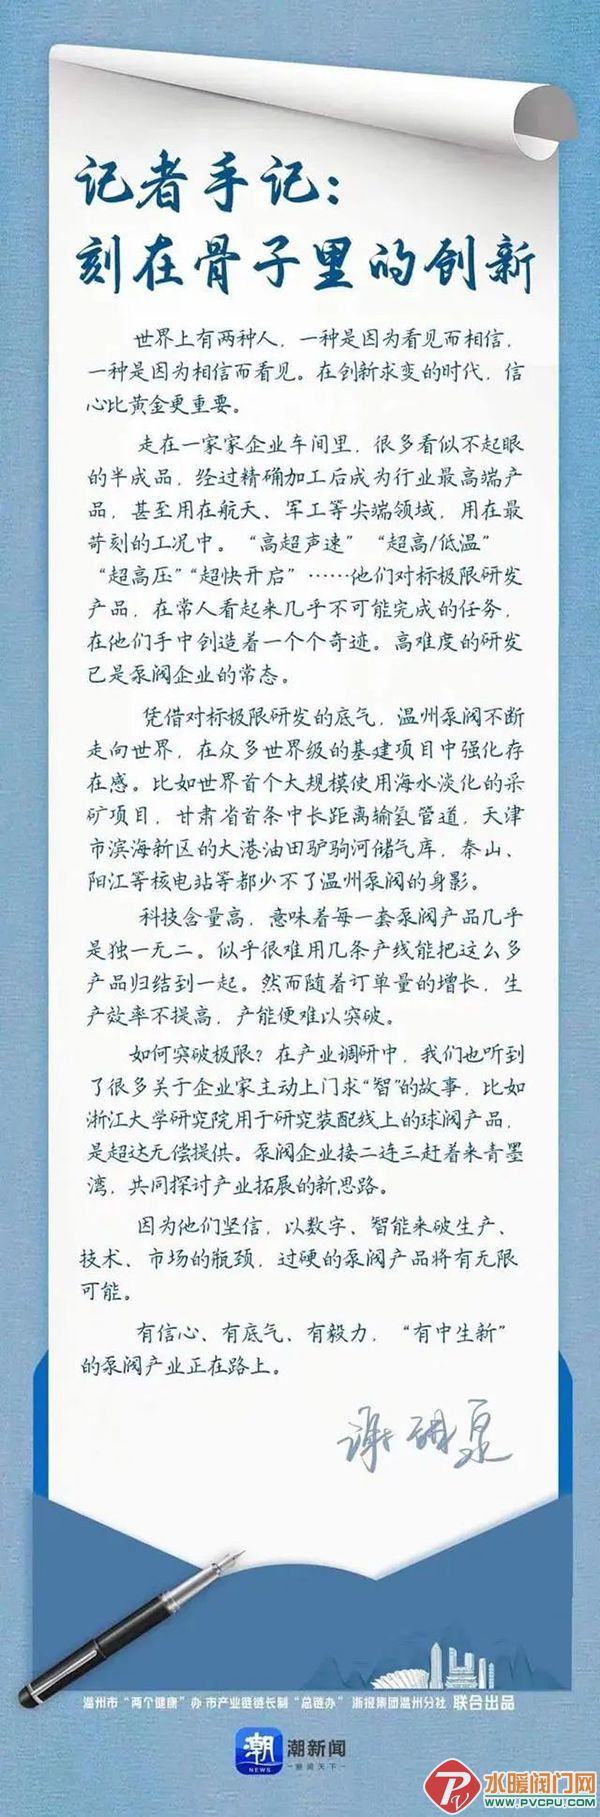 记者手记：
刻在骨子里的创新
世界上有两种人，一种是因为看见而相信，
一种是因为相信而看见。在创新求变的时代，信
心比黄金更重要。
走在一家家企业车间里，很多看似不起眼
的半成品，经过精确加工后成为行业最高端产
品，甚至用在航天、军工等尖端领域，用在最
苛刻的工况中。“高超声速”“超高/低温”
“超高压”“超快开启”……他们对标极限研发
产品，在常人看起来几乎不可能完成的任务，
在他们手中创造着一个个奇迹。高难度的研发
已是泵阀企业的常态。
凭借对标极限研发的底气，温州泵阀不断
走向世界，在众多世界级的基建项目中强化存
在感。比如世界首个大规模使用海水淡化的采
矿项目，甘肃省首条中长距离输氢管道，天津
市滨海新区的大港油田驴驹河储气库，秦山、
阳江等核电站等都少不了温州泵阀的身影。
科技含量高，意味着每一套泵阀产品几乎
是独一无二。似乎很难用几条产线能把这么多
产品归结到一起。然而随着订单量的增长，生
产效率不提高，产能便难以突破。
如何突破极限？在产业调研中，我们也听到
了很多关于企业家主动上门求“智”的故事，比如
浙江大学研究院用于研究装配线上的球阀产品，
是超达无偿提供。泵阀企业接二连三赶着来青墨
湾，共同探讨产业拓展的新思路。
因为他们坚信，以数字、智能来破生产、
技术、市场的瓶颈，过硬的泵阀产品将有无限
可能。
有信心、有底气、有毅力，“有中生新”
的泵阀产业正在路上。
温州市“两个健康”办 市产业链链长制“总链办” 浙报集团温州分社 联合出品
潮
NEWS
潮新闻
水暖阀门网
WWW.PVCPU.COM